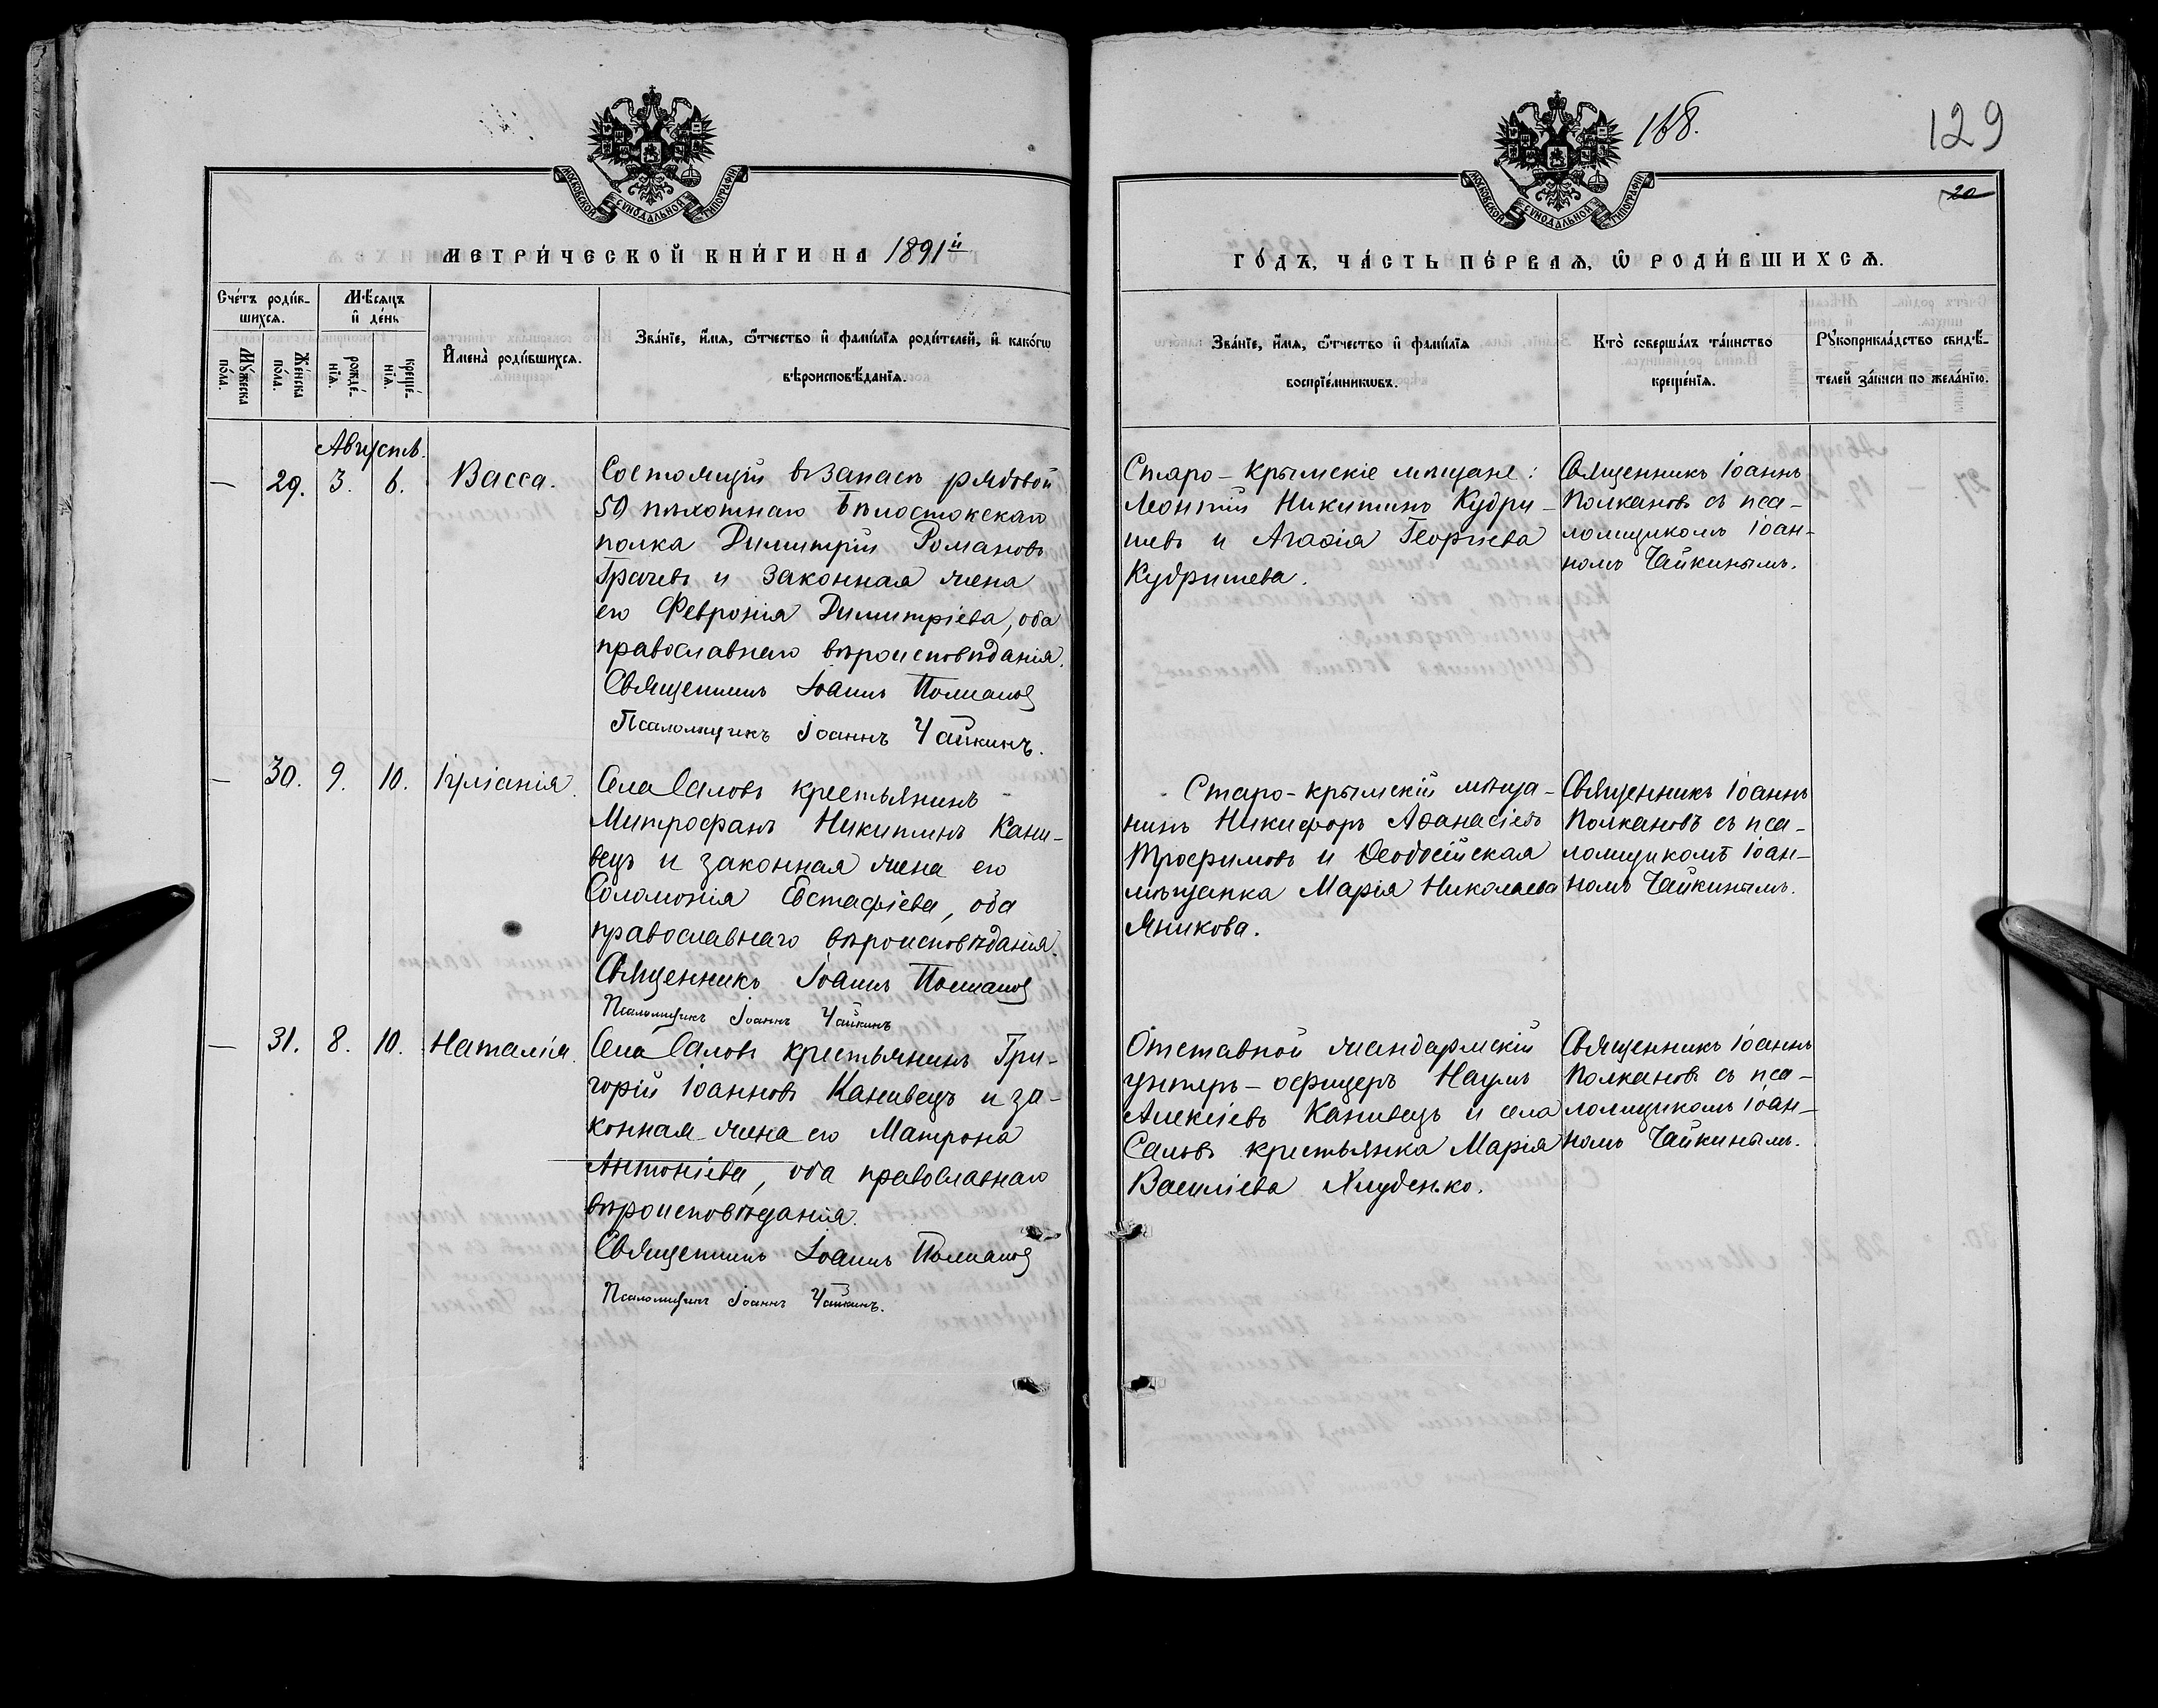 МОСКОВСКОЙ СѴНОДАЛЬНОЙ ТИПОГРАФІИ
МЕТРИ́ЧЕСКОЙ КНИ́ГИ НА 1891й
Сче́тъ роди́в-
шихсѧ.
Мꙋ́жеска по́ла.
Же́нска по́ла.
Мѣ́сѧцъ
и҆ де́нь
рожде́-
нїѧ.
креще́-
нїѧ.
И҆мена̀ роди́вшихсѧ.
Зва́нїе, и҆́мѧ, ѻ҆́тчество и҆ фами́лїѧ роди́телей, и҆ како́гѡ
вѣроисповѣ́данїѧ.
Августъ.
— 29. 3. 6. Васса.
Состоящій въ запасѣ рядовой
59 пѣхотнаго Бѣлостокскаго
полка Димитрій Романовъ
Грачевъ и законная жена
его Февронія Димитріева, оба
православнаго вѣроисповѣданія.
Священникъ Іоаннъ Полкановъ
Псаломщикъ Іоаннъ Чайкинъ.
— 30. 9. 10. Іуліанія.
Села Саловъ крестьянинъ
Митрофанъ Никитинъ Кани-
вецъ и законная жена его
Соломонія Евстафіева, оба
православнаго вѣроисповѣданія.
Священникъ Іоаннъ Полкановъ
Псаломщикъ Іоаннъ Чайкинъ
— 31. 8. 10. Наталія.
Села Саловъ крестьянинъ Гри-
горій Іоанновъ Канивецъ и за-
конная жена его Матрона
Антоніева, оба православнаго
вѣроисповѣданія.
Священникъ Іоаннъ Полкановъ
Псаломщикъ Іоаннъ Чайкинъ.
168.
129
20
МОСКОВСКОЙ СѴНОДАЛЬНОЙ ТИПОГРАФІИ
ГО́ДЪ, ЧА́СТЬ ПЕ́РВАѦ, Ѡ҆ РОДИ́ВШИХСѦ.
Зва́нїе, и҆́мѧ, ѻ҆́тчество и҆ фами́лїѧ
воспрїе́мникѡвъ.
Кто̀ соверша́лъ та́инство
креще́нїѧ.
Рꙋкоприкла́дство свидѣ́-
телей за́писи по жела́нїю.
Старо-Крымскіе мѣщане:
Леонтій Никитинъ Кудри-
шевъ и Агаѳія Георгіева
Кудришева.
Священникъ Іоаннъ
Полкановъ съ пса-
ломщикомъ Іоан-
номъ Чайкинымъ.
Старо-крымскій мѣща-
нинъ Никифоръ Аѳанасіевъ
Трофимовъ и Ѳеодосійская
мѣщанка Марія Николаева
Яникова.
Священникъ Іоаннъ
Полкановъ съ пса-
ломщикомъ Іоан-
номъ Чайкинымъ.
Отставной жандармскій
унтеръ-офицеръ Наумъ
Алексіевъ Канивецъ и села
Саловъ крестьянка Марія
Василіева Жлуденко.
Священникъ Іоаннъ
Полкановъ съ пса-
ломщикомъ Іоан-
номъ Чайкинымъ.